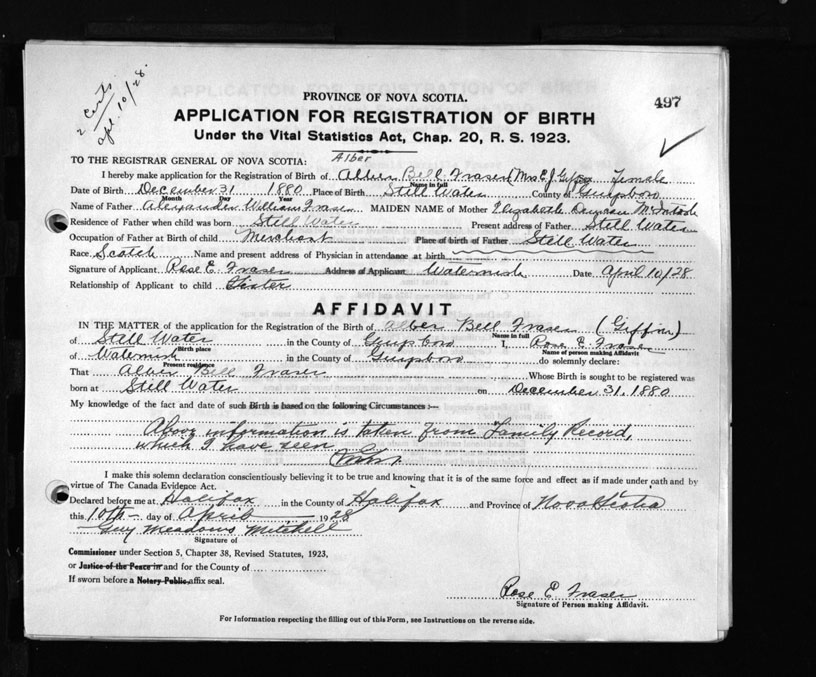 2 Certs.
Apl. 10/28.
497
PROVINCE OF NOVA SCOTIA.
APPLICATION FOR REGISTRATION OF BIRTH
Under the Vital Statistics Act, Chap. 20, R. S. 1923.
TO THE REGISTRAR GENERAL OF NOVA SCOTIA:
Alber
I hereby make application for the Registration of Birth of Bell Fraser (Mrs E. J. Female
Name in full
Date of Birth December 31 1880 Place of Birth Still Water County of Guysboro
Month Day Year
Name of Father Alexander William Fraser MAIDEN NAME of Mother Elizabeth McIntosh
Residence of Father when child was born Still Water Present address of Father Still Water
Occupation of Father at Birth of child Merchant Place of birth of Father Still Water
Race Scotch Name and present address of Physician in attendance at birth
Signature of Applicant Rose E. Fraser Address of Applicant Date April 10/28
Relationship of Applicant to child Sister
AFFIDAVIT
IN THE MATTER of the application for the Registration of the Birth of Alber Bell Fraser (Giffin)
Name in full
of Still Water in the County of Guysboro I, Rose E. Fraser
Birth place Name of person making Affidavit
of in the County of Guysboro do solemnly declare:
Present residence
That Alber Bell Fraser Whose Birth is sought to be registered was
born at Still Water on December 31, 1880
My knowledge of the fact and date of such Birth is based on the following Circumstances :—
Above information is taken from Family Record,
which I have seen
I make this solemn declaration conscientiously believing it to be true and knowing that it is of the same force and effect as if made under oath and by
virtue of The Canada Evidence Act.
Declared before me at Halifax in the County of Halifax and Province of Nova Scotia
this 10th day of April 1928
Guy Meadows Mitchell
Signature of
Commissioner under Section 5, Chapter 38, Revised Statutes, 1923,
or Justice of the Peace in and for the County of
If sworn before a Notary Public, affix seal.
Rose E Fraser
Signature of Person making Affidavit.
For Information respecting the filling out of this Form, see Instructions on the reverse side.